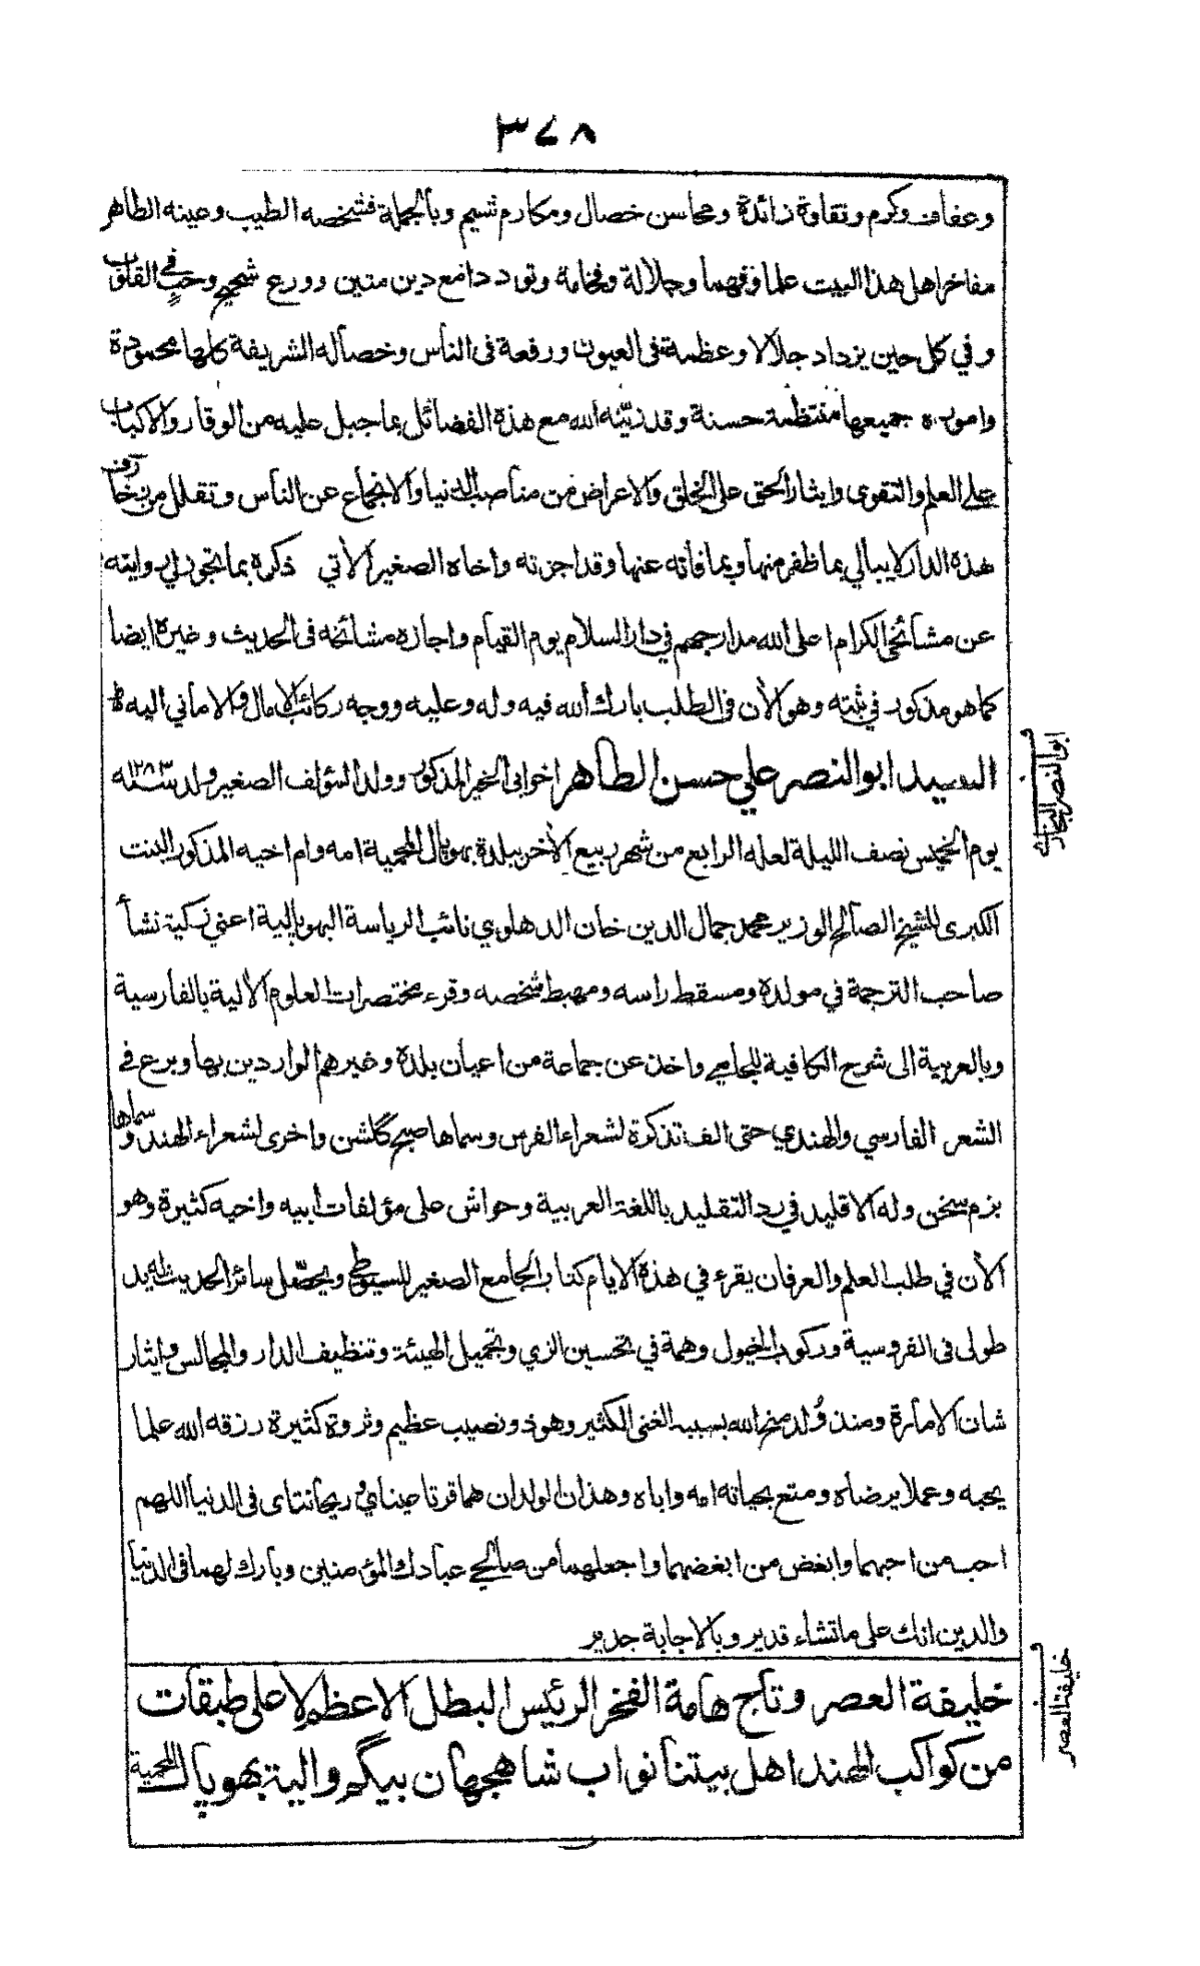 ٣٧٨
وعفاف وكرم ونقاوة زائدة ومحاسن خصال ومكارم شيم وبالجملة فشخصه الطيب وعينه الطاهر
مفاخر اهل هذا البيت علما وفهما وجلالة وفخامة وتودد امع دين متين وورع شحيح وحب في القلوب
وفي كل حين يزداد جلالا وعظمة فى العيون ورفعة فى الناس وخصاله الشريفة كلها محمودة
واموره جميعها منتظمة حسنة وقد زينه الله مع هذه الفضائل بما جبل عليه من الوقار والاكباب
على العلم والتقوى وايثار الحق على الخلق والاعراض عن مناصب الدنيا والانجماع عن الناس وتقلل من زخارف
هذه الدار لا يبالي بما ظفر منها وبما فاته عنها وقد اجزته واخاه الصغير الأتي ذكره بما تجوز لي روايته
عن مشائخي الكرام اعلى الله مدارجهم في دار السلام يوم القيام واجازه مشائخه فى الحديث وغيره ايضا
كما هو مذكور في ثبته وهو الأن فى الطلب بارك الله فيه وله وعليه ووجه ركائب الامال والاماني اليه
السيد ابو النصر علي حسن الطاهر اخو ابى الخير المذكور وولد المؤلف الصغير ولد سنة ١٢٨٣ه
يوم الخميس نصف الليلة لعله الرابع من شهر ربيع الأخر ببلدة بهوپال المحمية امه وام اخيه المذكور البنت
الكبرى للشيخ الصالح الوزير محمد جمال الدين خان الدهلوي نائب الرياسة البهوپالية اعني زكية نشأ
صاحب الترجمة في مولده ومسقط راسه ومهبط شخصه وقرء مختصرات العلوم الألية بالفارسية
وبالعربية الى شرح الكافية للجامي واخذ عن جماعة من اعيان بلدة وغيرهم الواردين بها وبرع في
الشعر الفارسي والهندي حتى الف تذكرة لشعراء الفرس وسماها صبح گلشن واخرى لشعراء الهند وسماها
بزم سخن وله الاقليد في رد التقليد باللغة العربية وحواش على مؤلفات أبيه واخيه كثيرة وهو
الأن في طلب العلم والعرفان يقرء في هذه الايام كتاب الجامع الصغير للسيوطي ويحصّل سائر الحديث له يد
طولى فى الفروسية وركوب الخيول وهمة في تحسين الزي وتجميل الهيئة وتنظيف الدار والمجالس وايثار
شان الامارة ومنذ وُلد منح الله بسببه الغنى الكثير وهو ذو نصيب عظيم وثروة كثيرة رزقه الله علما
يحبه وعملا يرضاه ومتع بحياته امه واباه وهذان الولدان هما قرتا عيناي وريحانتاى فى الدنيا اللهم
احب من احبهما وابغض من ابغضهما واجعلهما من صالحي عبادك المؤمنين وبارك لهما فى الدنيا
والدين انك على ماتشاء قدير وبالاجابة جدير
خليفة العصر وتاج هامة الفخر الرئيس البطل الاعظم لاعلى طبقات
من كواكب الهند اهل بيتنا نواب شاهجهان بيگم والية بهوپال المحمية
ابو النصر البخاري
خليفة العصر